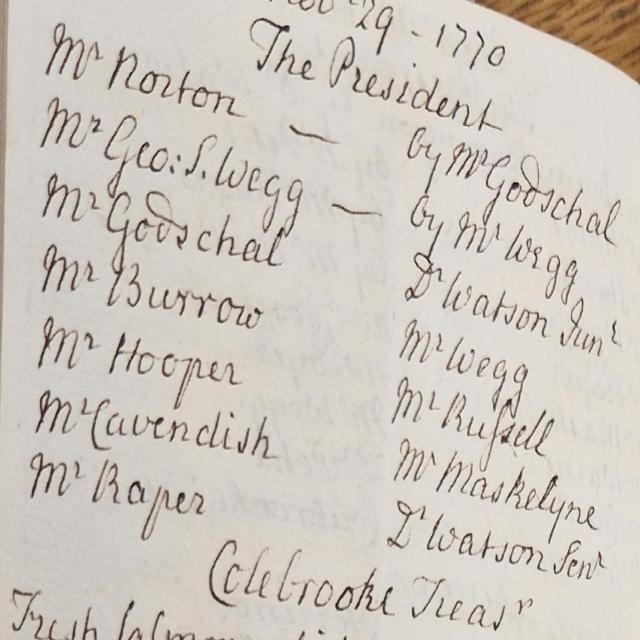 Nov 29 - 1770
The President
Mr Norton — by Mr Godschal
Mr Geo: S. Wegg — by Mr Wegg
Mr Godschal Dr Watson Junr
Mr Burrow Mr Wegg
Mr Hooper Mr Russell
Mr Cavendish Mr Maskelyne
Mr Raper Dr Watson Senr
Colebrooke Treasr
Fresh Salmon